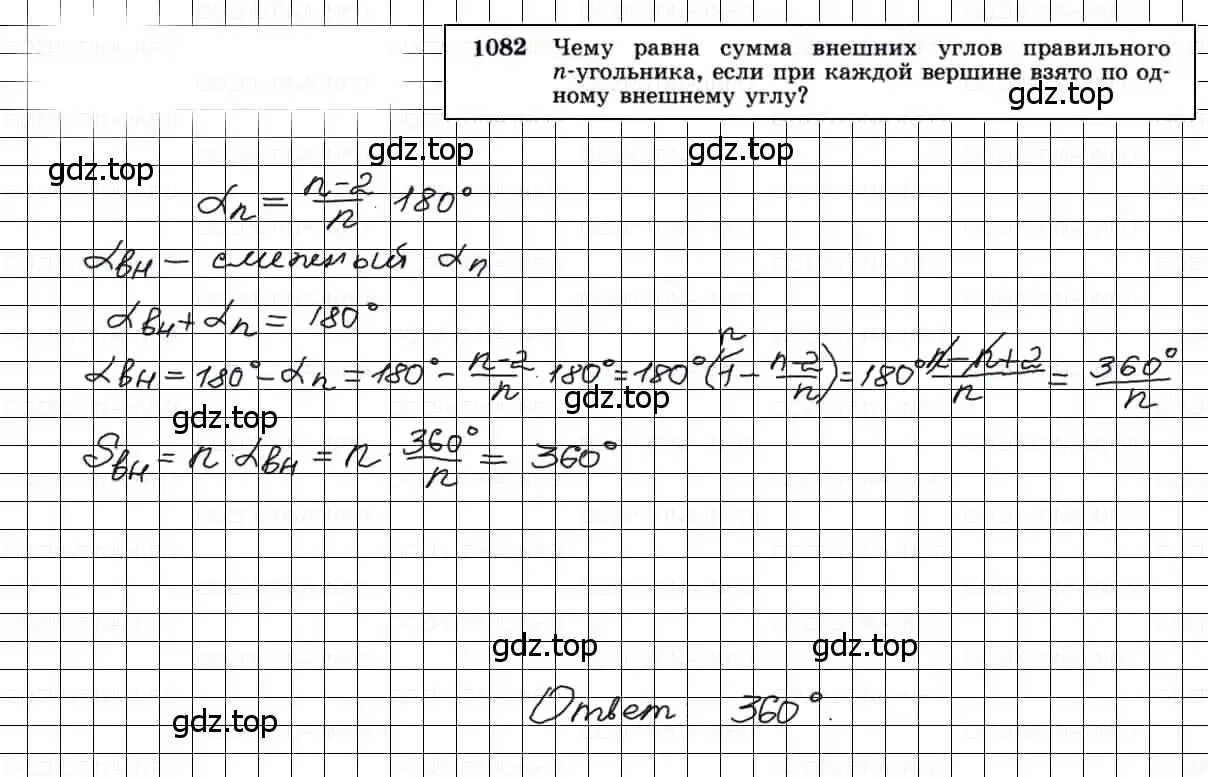 1082 Чему равна сумма внешних углов правильного
n-угольника, если при каждой вершине взято по од-
ному внешнему углу?
gdz.top
gdz.top gdz.top
gdz.top
αₙ = (n-2)/n · 180°
αвн – смежный αₙ
αвн + αₙ = 180°
αвн = 180° - αₙ = 180° - (n-2)/n · 180° = 180°(1ⁿ - (n-2)/n) = 180° (n-n+2)/n = 360°/n
gdz.top gdz.top
Sвн = n · αвн = n · 360°/n = 360°
gdz.top gdz.top
Ответ 360°.
gdz.top